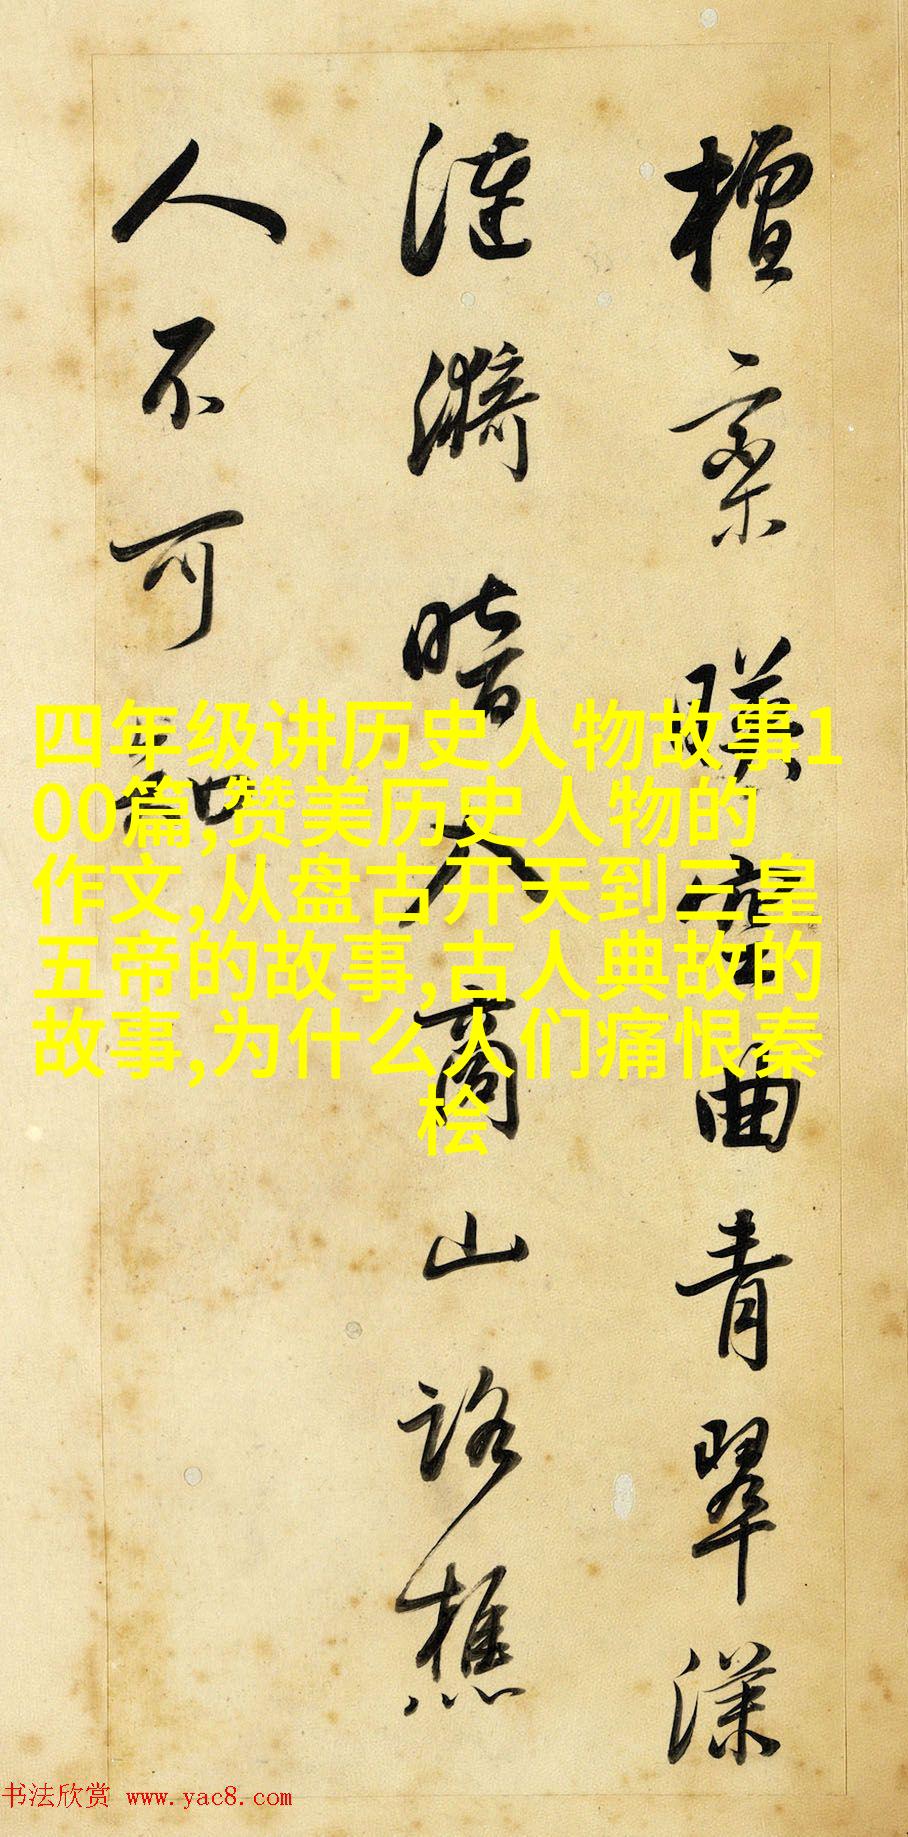 檀栾映空曲青翠漾
涟漪暗入商山路樵
人不可知
四年级讲历史人物故事1
00篇,赞美历史人物的
作文,从盘古开天到三皇
五帝的故事,古人典故的
故事,为什么人们痛恨秦
桧
书法欣赏 www.yac8.com